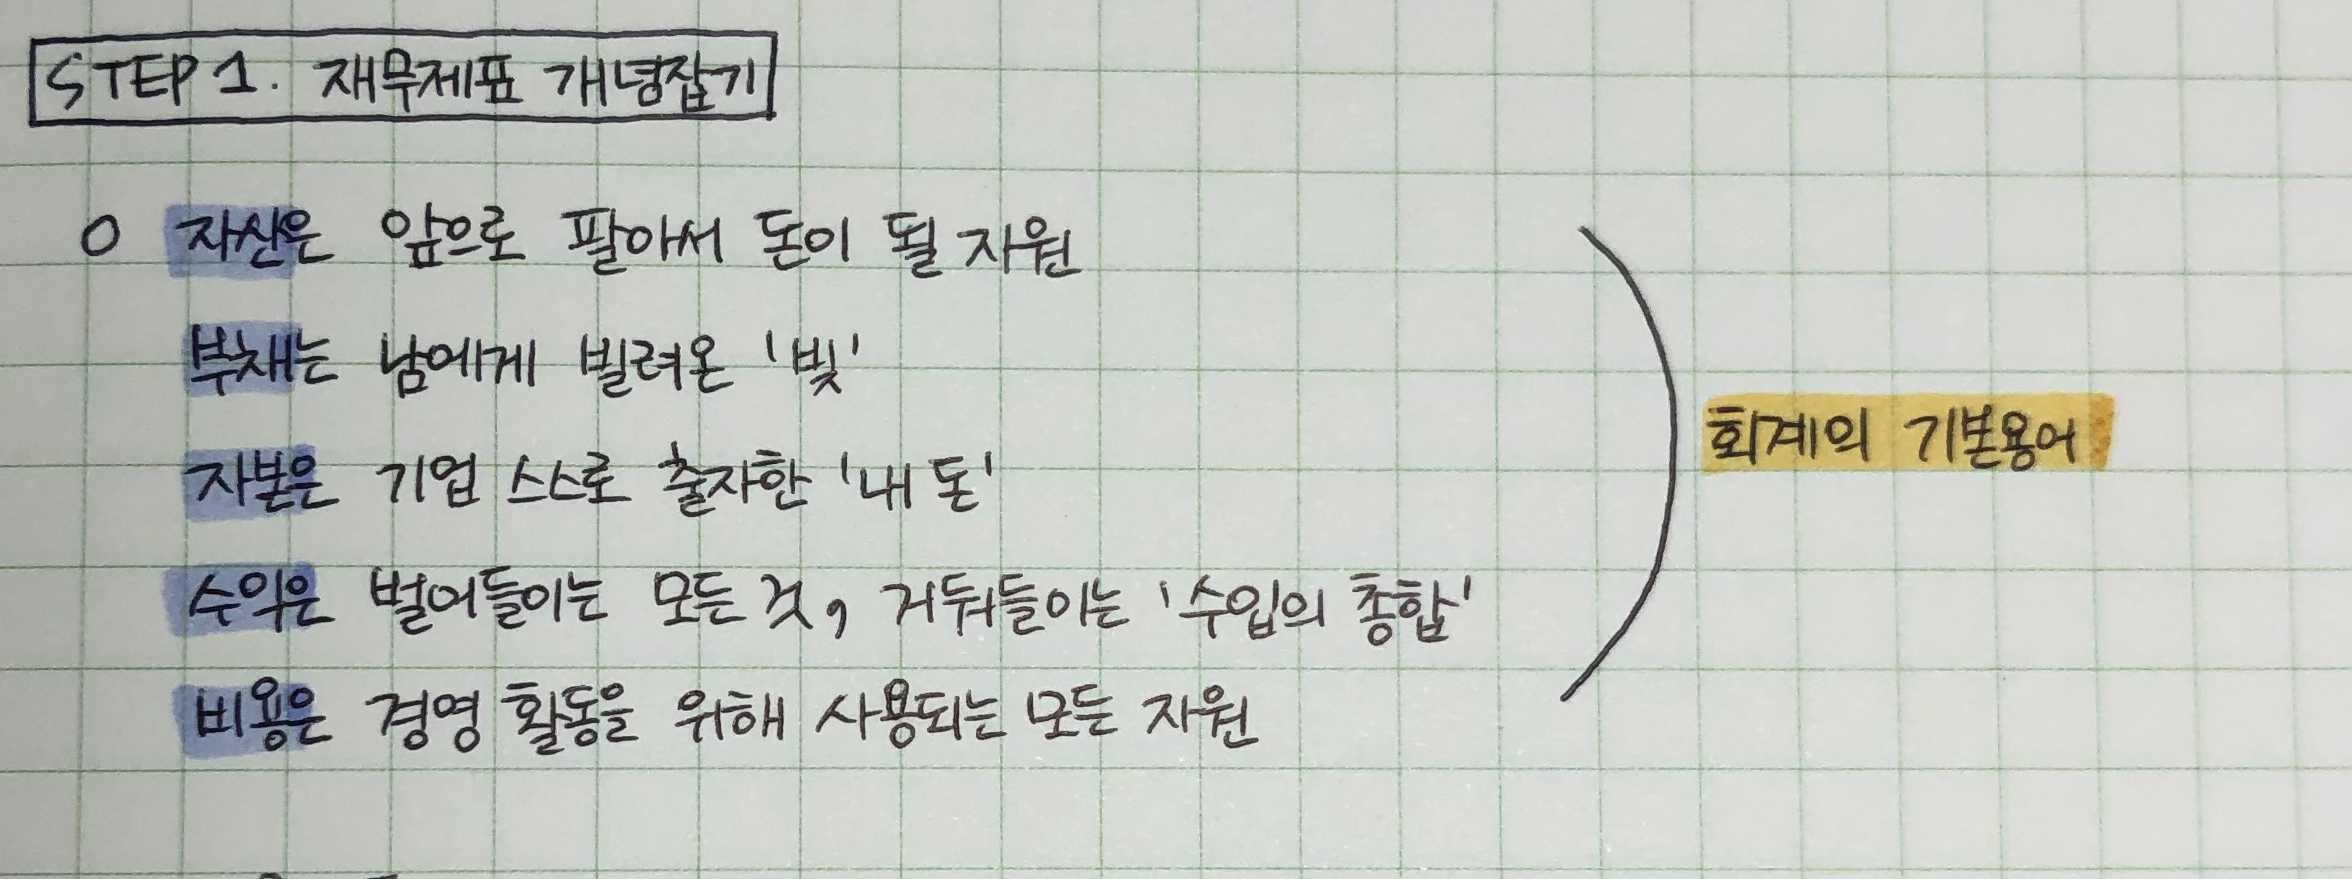 STEP 1. 재무제표 개념잡기
o 자산은 앞으로 팔아서 돈이 될 자원
부채는 남에게 빌려온 '빚'
자본은 기업 스스로 출자한 '내 돈'
수익은 벌어들이는 모든 것, 거둬들이는 '수입의 총합'
비용은 경영 활동을 위해 사용되는 모든 자원
회계의 기본용어